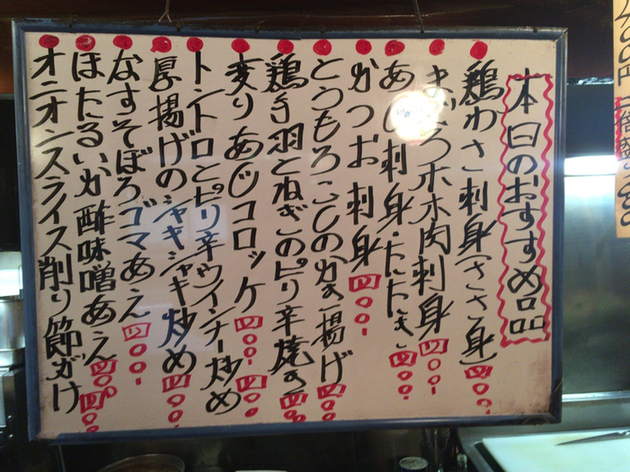 本日のおすすめ品
鶏わさ刺身(ささ身)四〇〇-
まぐろホホ肉刺身四〇〇-
あじ刺身・たたき四〇〇-
かつお刺身四〇〇-
とうもろこしのかき揚げ四〇〇-
鶏手羽とねぎのピリ辛焼き四〇〇-
変りあじコロッケ四〇〇-
トントロとピリ辛ウインナー炒め四〇〇-
厚揚げのシャキシャキ炒め四〇〇-
なすそぼろゴマあえ四〇〇-
ほたるいか酢味噌あえ四〇〇-
オニオンスライス削り節がけ四〇〇-